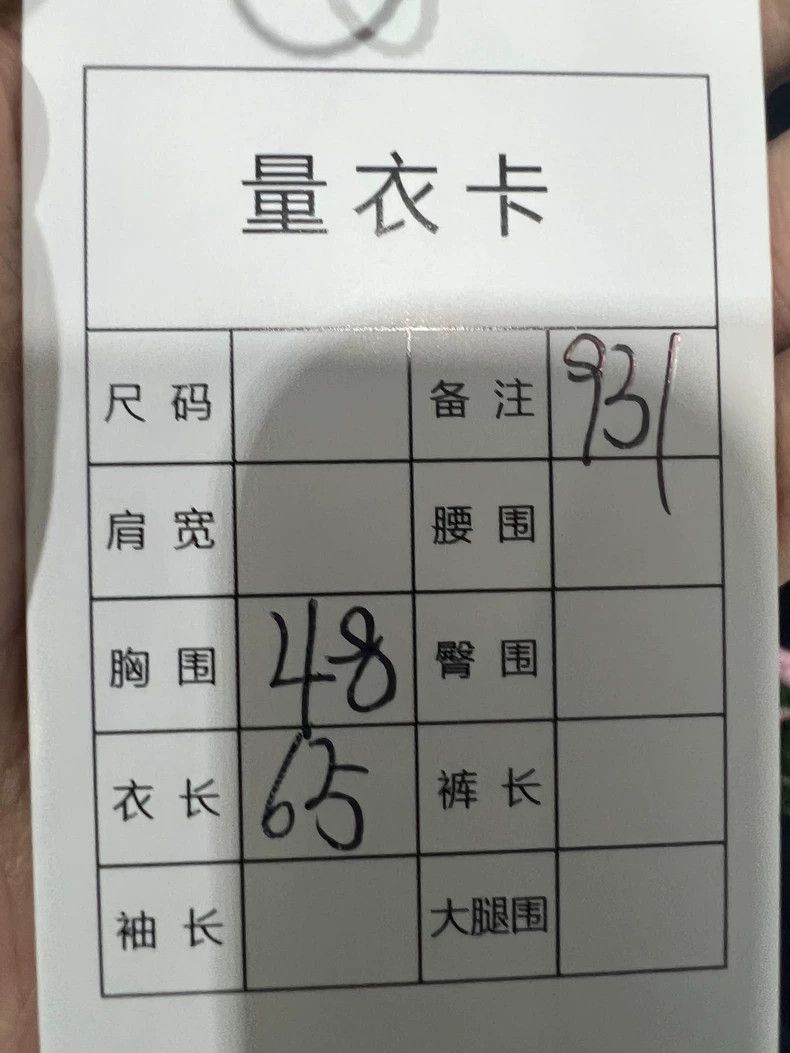 量衣卡
尺码 备注 931
肩宽 腰围
胸围 48 臀围
衣长 65 裤长
袖长 大腿围